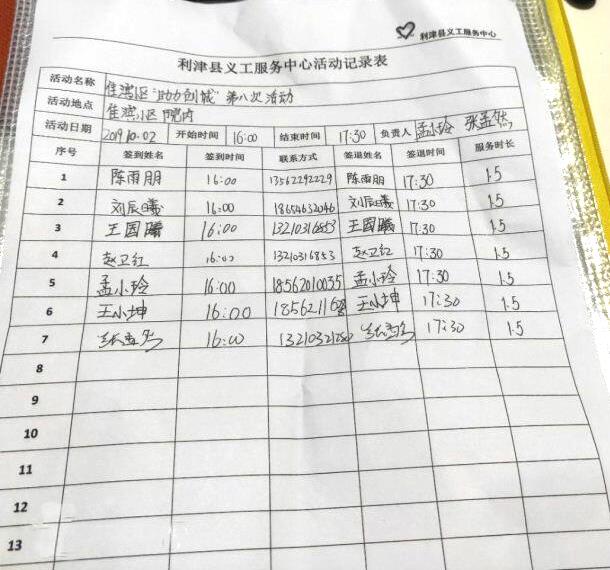 利津县义工服务中心
利津县义工服务中心活动记录表
活动名称 佳滨小区"助力创城"第八次活动
活动地点 佳滨小区院内
活动日期 2019.10.02 开始时间 16:00 结束时间 17:30 负责人 孟小玲 张孟然
序号 签到姓名 签到时间 联系方式 签退姓名 签退时间 服务时长
1 陈雨朋 16:00 13562292229 陈雨朋 17:30 1.5
2 刘辰曦 16:00 18654632046 刘辰曦 17:30 1.5
3 王国腾 16:00 13210316853 王国腾 17:30 1.5
4 赵卫红 16:00 13210316853 赵卫红 17:30 1.5
5 孟小玲 16:00 18562010035 孟小玲 17:30 1.5
6 王小坤 16:00 王小坤 17:30 1.5
7 16:00 17:30 1.5
8
9
10
11
12
13